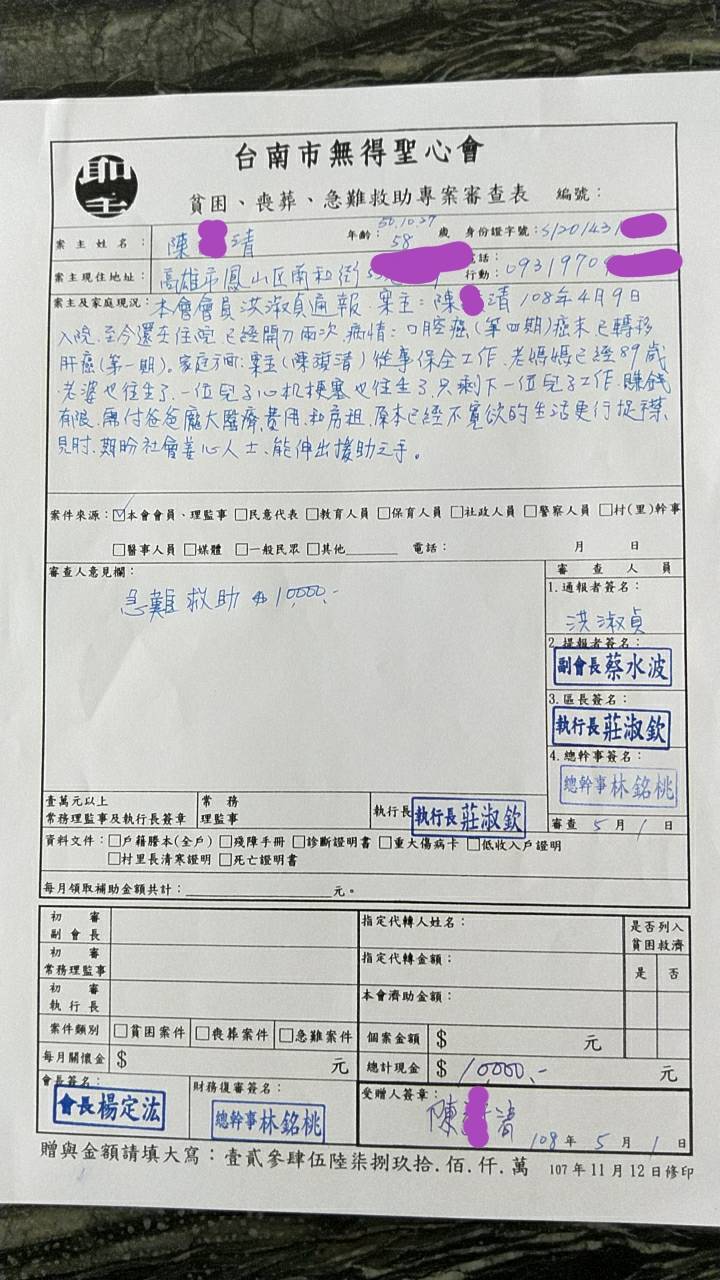 台南市無得聖心會
貧困、喪葬、急難救助專案審查表 編號：
案主姓名： 陳 清 年齡： 50.10.27 58 歲 身份證字號： S1201431
案主現住地址： 高雄市鳳山區南和街 電話： 行動： 0931970
案主及家庭現況： 本會會員洪淑貞通報. 案主：陳 清 108年4月9日
入院. 至今還在住院. 已經開刀兩次. 病情：口腔癌(第四期)癌末已轉移
肝癌(第一期)。家庭方面：案主(陳 清)從事保全工作. 老媽媽已經89歲
老婆也往生了. 一位兒子心机梗塞也往生了. 只剩下一位兒子工作. 賺錢
有限. 需付爸爸龐大醫療費用. 和房租. 原本已經不寬欲的生活更行捉襟
見肘. 期盼社會善心人士. 能伸出援助之手。
案件來源：☑本會會員、理監事 □民意代表 □教育人員 □保育人員 □社政人員 □警察人員 □村(里)幹事
□醫事人員 □媒體 □一般民眾 □其他______ 電話： 月 日
審查人意見欄：
急難救助 $10,000.-
審查人員
1.通報者簽名：
洪淑貞
2.提報者簽名：
副會長蔡水波
3.區長簽名：
執行長莊淑欽
4.總幹事簽名：
總幹事林銘桃
審查 5月1日
壹萬元以上
常務理監事及執行長簽章
常務
理監事
執行長 執行長莊淑欽
資料文件：□戶籍謄本(全戶) □殘障手冊 □診斷證明書 □重大傷病卡 □低收入戶證明
□村里長清寒證明 □死亡證明書
每月領取補助金額共計：______________元。
初審
副會長
初審
常務理監事
初審
執行長
指定代轉人姓名：
指定代轉金額：
本會濟助金額：
是否列入
貧困救濟
是 否
案件類別 □貧困案件 □喪葬案件 □急難案件 個案金額 $ 元
每月關懷金 $ 元 總計現金 $ 10,000.- 元
會長簽名：
會長楊定浤
財務復審簽名：
總幹事林銘桃
受贈人簽章：
陳 清
108年5月1日
贈與金額請填大寫：壹貳參肆伍陸柒捌玖拾.佰.仟.萬 107年11月12日修印